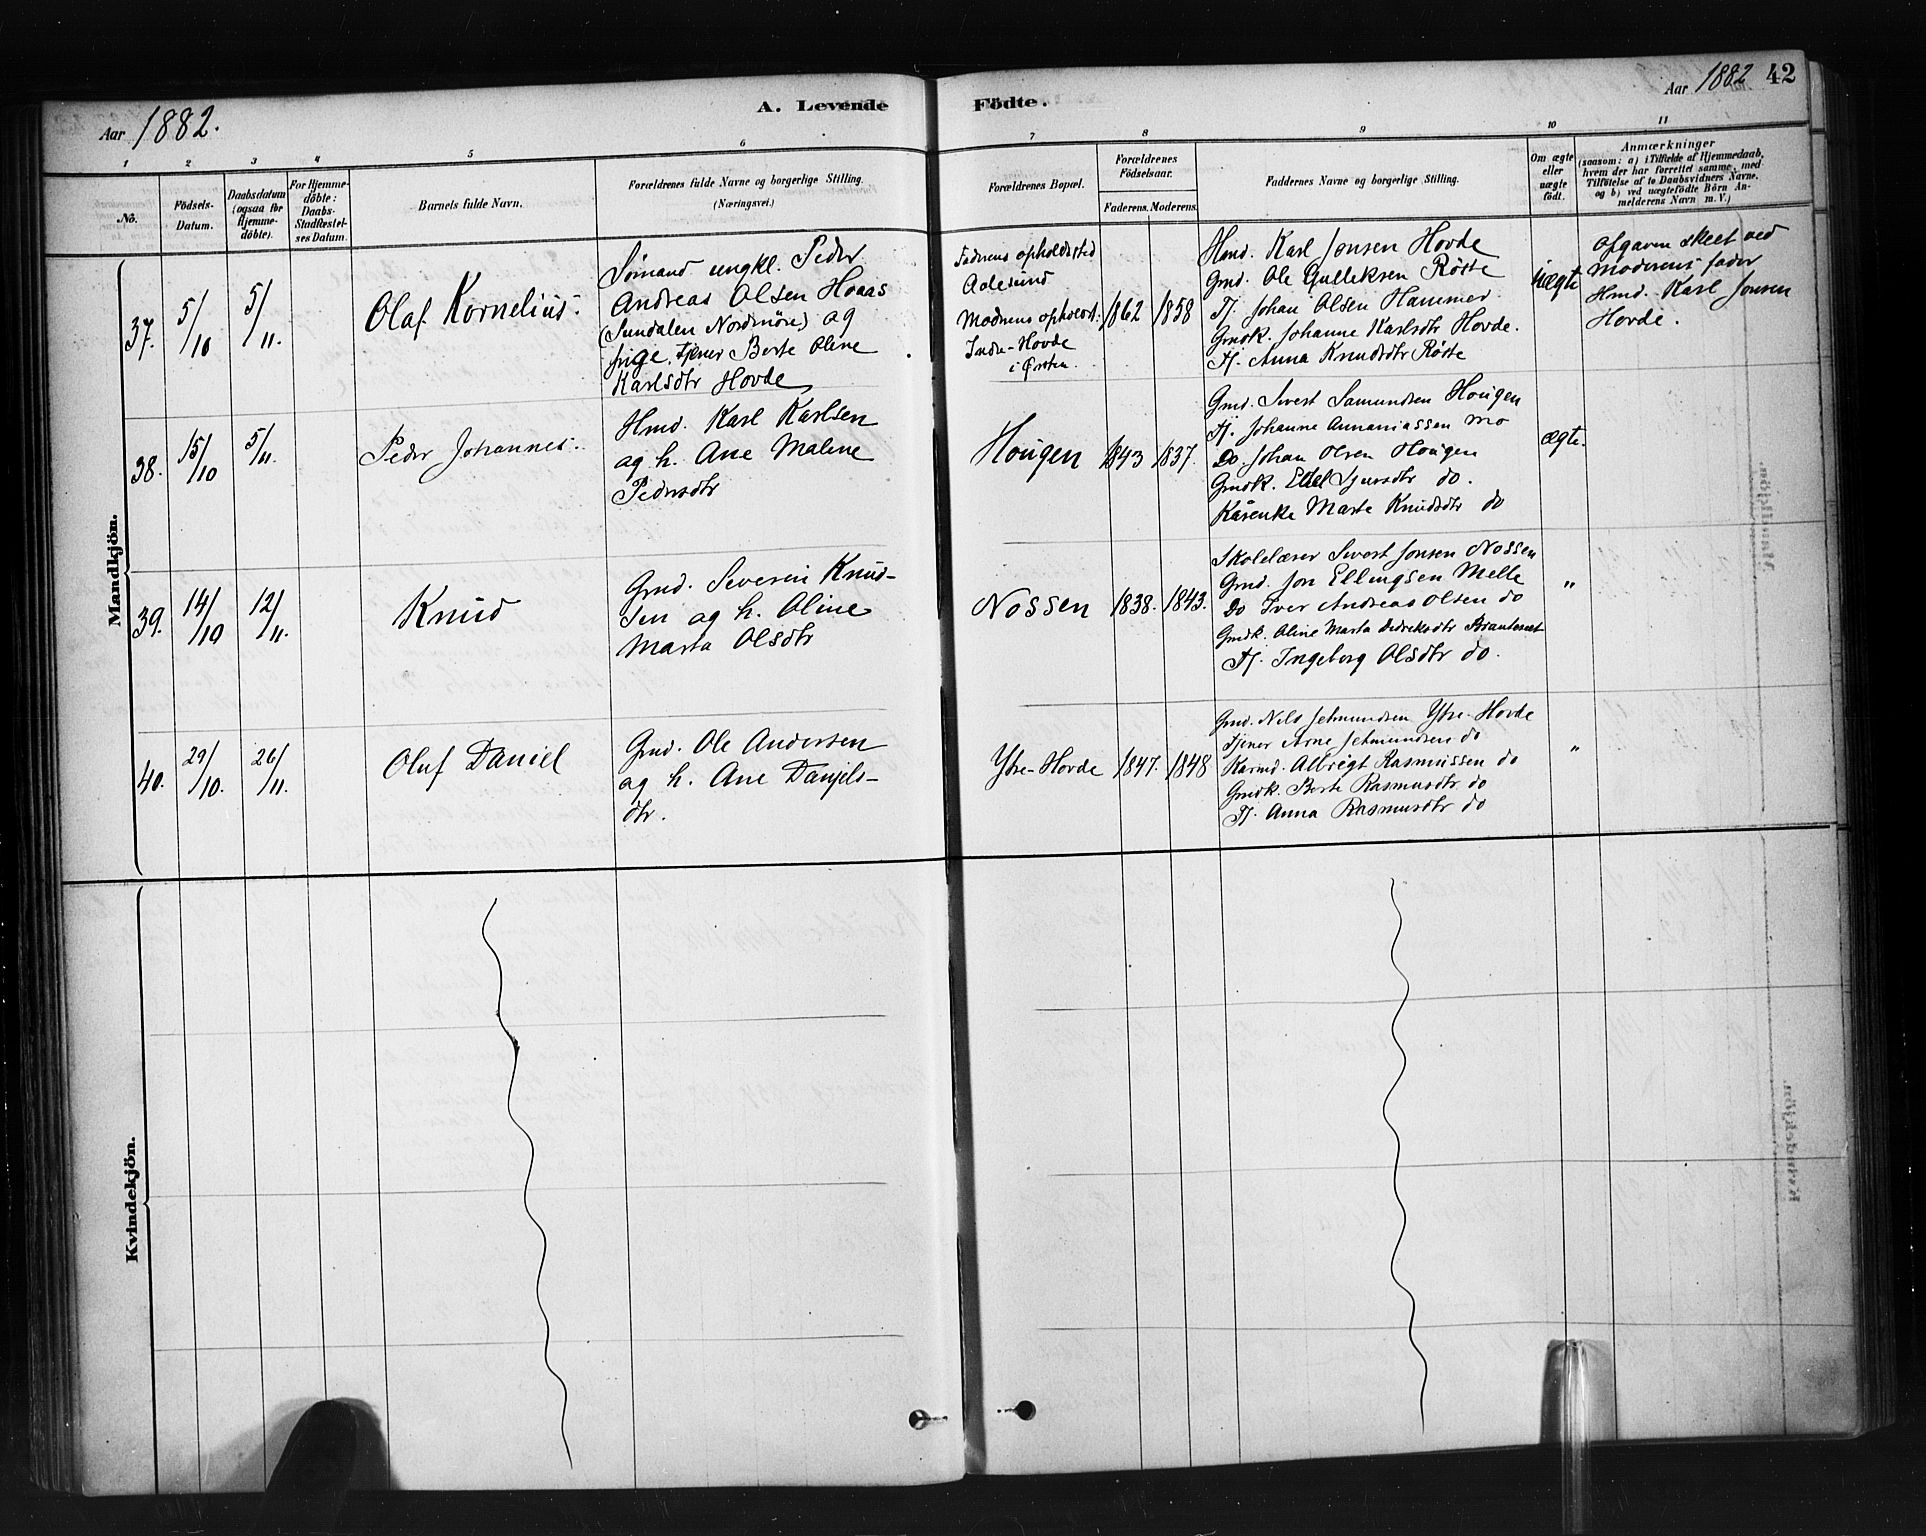 Aar 1882.
A. Levende
Födte.
Aar 1882
42
1 2 3 4 5 6
7 8 9 10 11
No.
Födsels-
Datum.
Daabsdatum
(ogsaa for
Hjemme-
döbte).
For Hjemme-
döbte:
Daabs-
Stadfæstel-
ses Datum.
Barnets fulde Navn.
Forældrenes fulde Navne og borgerlige Stilling.
(Næringsvei.)
Forældrenes Bopæl.
Forældrenes
Födselsaar.
Faderens. Moderens.
Faddernes Navne og borgerlige Stilling.
Om ægte
eller
uægte
födt.
Anmærkninger
(saasom: a) i Tilfælde af Hjemmedaab,
hvem der har forrettet samme, med
Tilföielse af to Daabsvidners Navne,
og b) ved uægtefödte Börn An-
melderens Navn m. V.)
Mandkjön.
37.
5/10
5/11.
Olaf Kornelius.
Sömand ungkl. Peder
Andreas Olsen Hoaas
(Sundalen Nordmöre) og
pige, Tjener Berte Oline
Karlsdtr Hovde
Faderens opholdssted
Aalesund
Moderens opholdst.
Indre-Hovde
i Örsten.
1862
1858
Hmd. Karl Jonsen Hovde
Gmd. Ole Gulleksen Röste
Tj. Johan Olsen Hammer
Gmdk. Johanne Karlsdtr Hovde.
Tj. Anna Knudsdtr Röste
uægte
Opgaven skeet ved
Moderens fader
Hmd. Karl Jonsen
Hovde.
38.
15/10
5/11.
Peder Johannes.
Hmd. Karl Karlsen
og h. Ane Malene
Pedersdtr
Hougen
1843
1837.
Gmd. Sivert Samundsen Hougen
Tj. Johanne Annaniassen Mo
Do. Johan Olsen Hougen
Gmdk. Eliel Sjursdtr do.
Kårenke Marte Knudsdtr do
ægte.
39.
14/10
12/11.
Knud
Gmd. Severin Knud-
sen og h. Oline
Marta Olsdtr
Nossen
1838.
1843.
Skolelærer Sivert Jonsen Nossen
Gmd. Jon Ellingsen Melle
Do Iver Andreas Olsen do
Gmdk. Oline Marta Didriksdtr
Tj. Ingeborg Olsdtr do.
"
40.
29/10.
26/11.
Oluf Daniel
Gmd. Ole Andersen
og h. Ane Danjels-
dtr.
Ytre-Hovde
1847.
1848
Gmd. Nils Jetmundsen Ytre-Hovde
Tjener Arne Jetmundsen do
Karmd. Albrigt Rasmussen do
Gmdk. Berte Rasmusdtr do
Tj. Anna Rasmusdtr do
"
Kvindekjön.